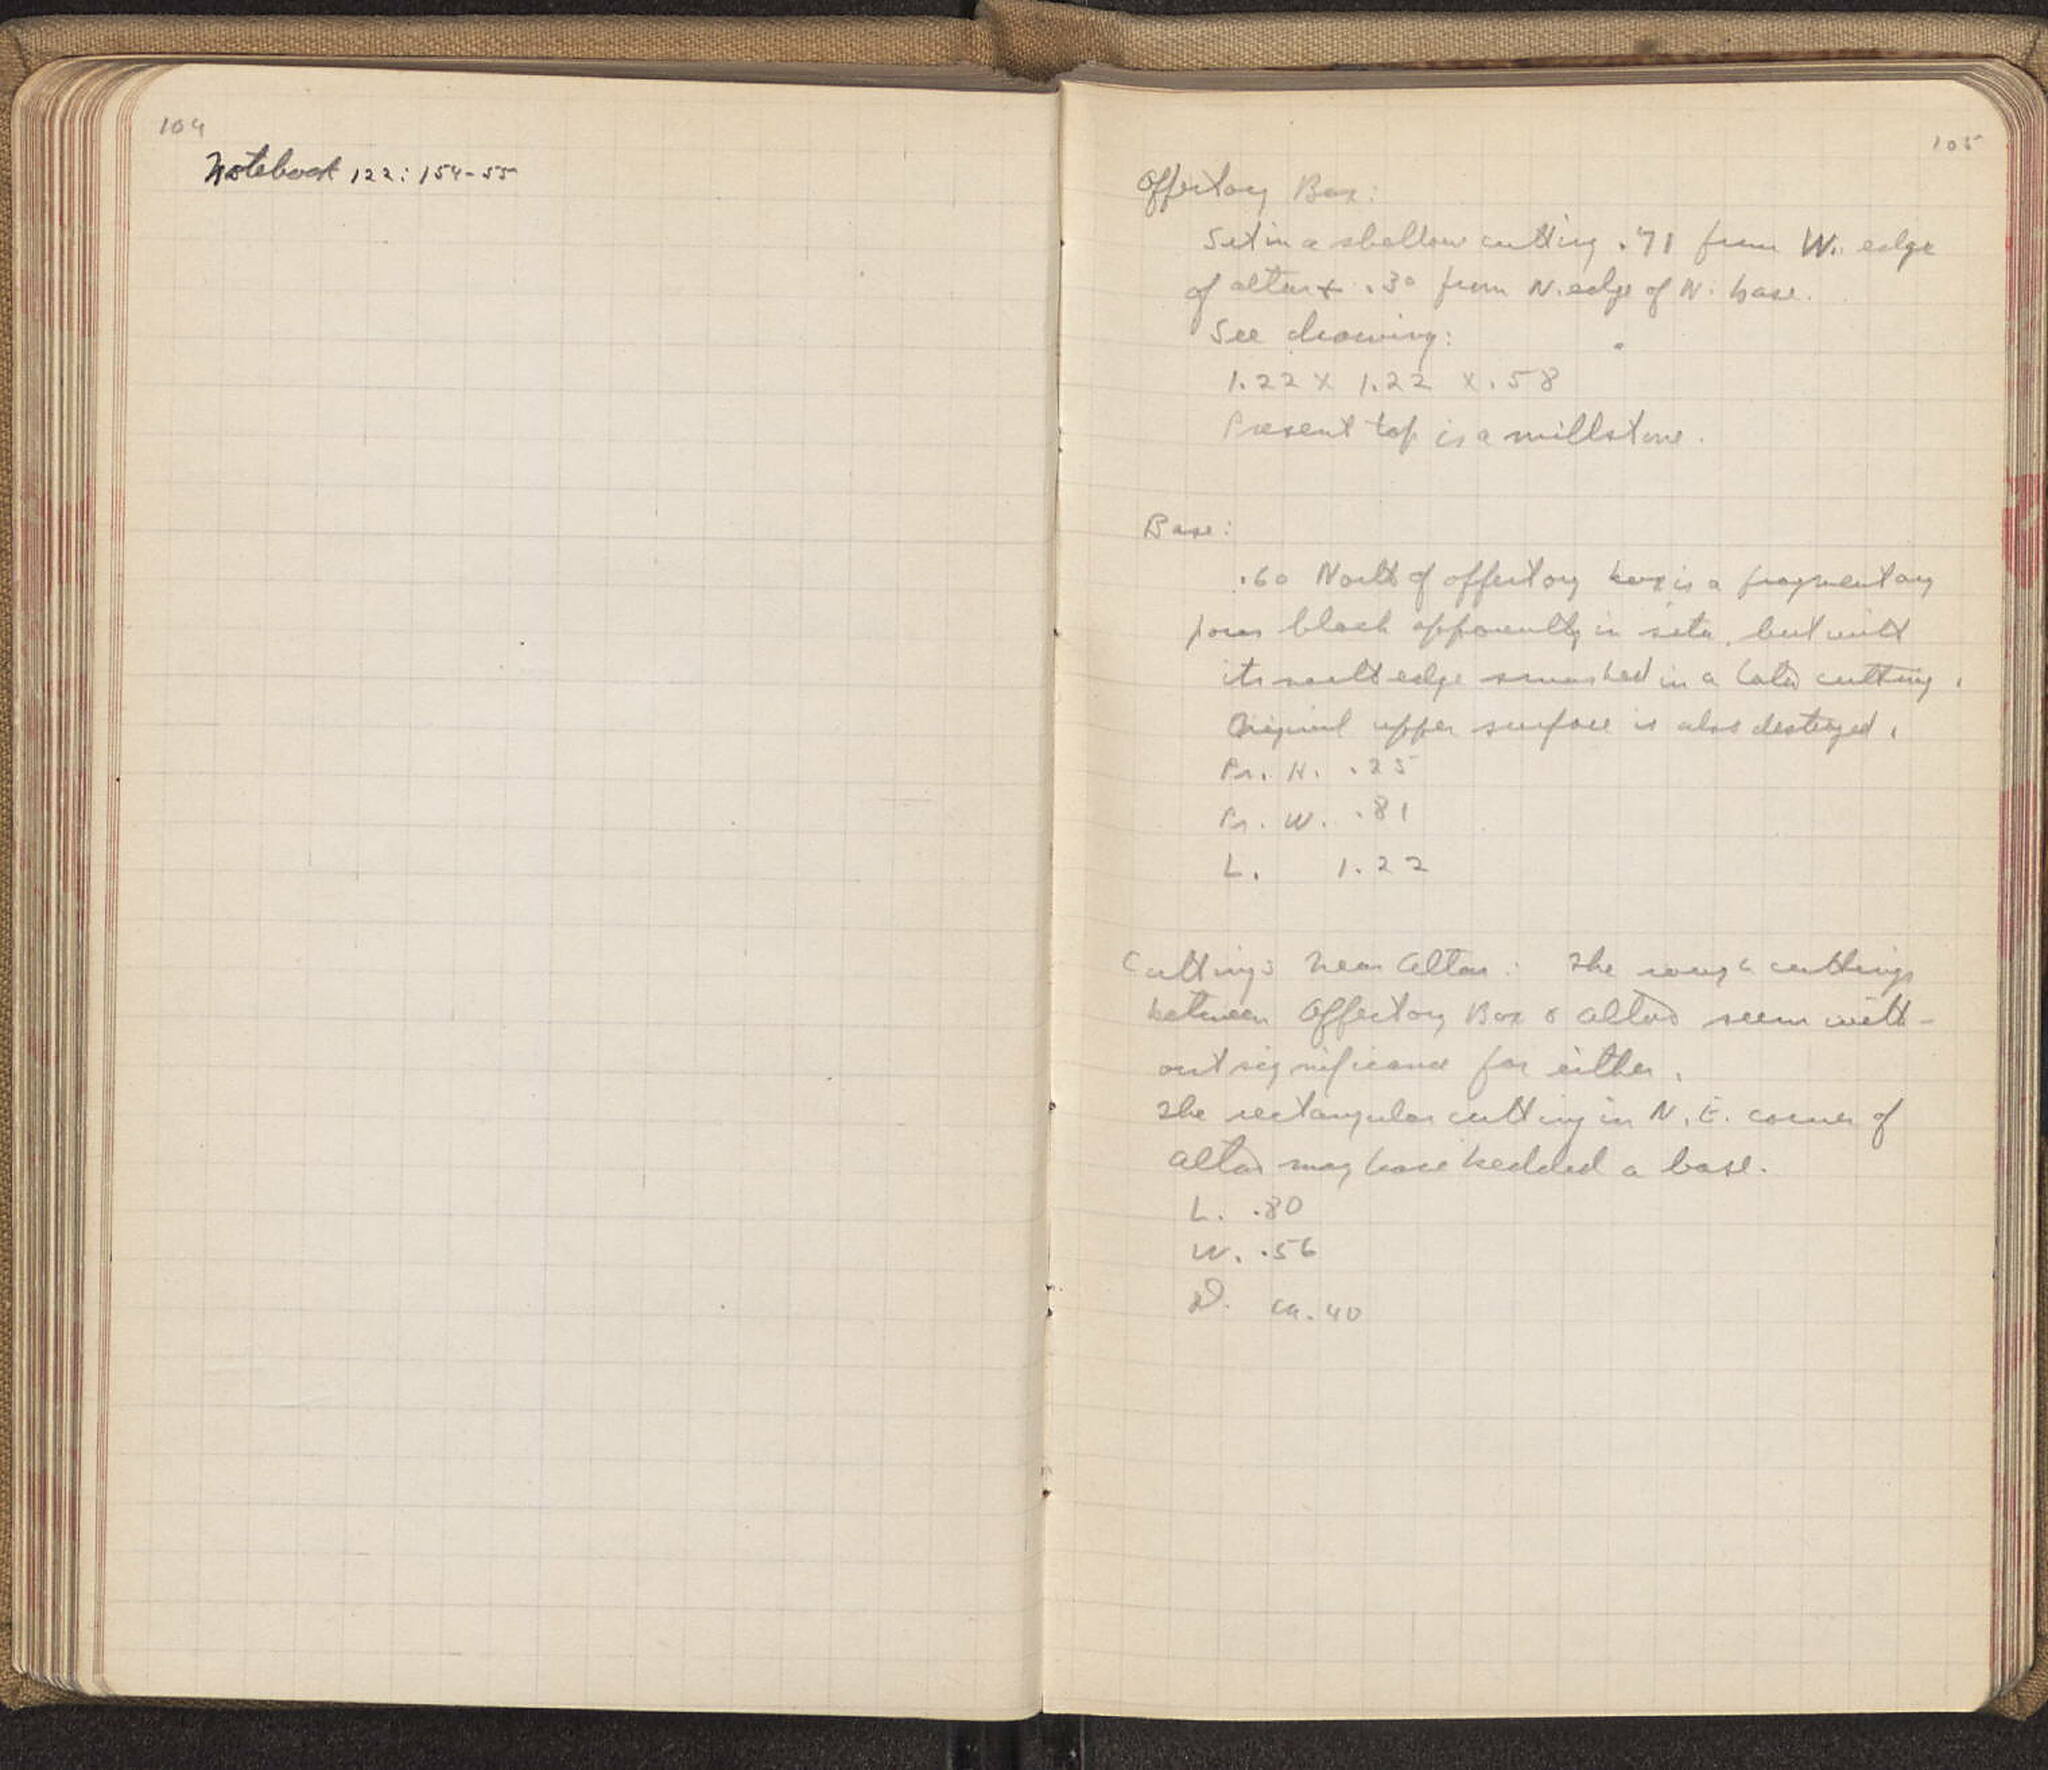 104
Notebook 122: 154-55
105
Offertory Box:
Set in a shallow cutting .71 from W. edge
of altar + .30 from N. edge of N. base.
See drawing:
1.22 x 1.22 x .58
Present top is a millstone.
Base:
.60 North of offertory box is a fragmentary
poros block apparently in situ, but with
its north edge smashed in a later cutting.
Original upper surface is also destroyed.
Pr. H. .25
Pr. W. .81
L. 1.22
Cuttings near Altar: The rough cuttings
between Offertory Box & altar seem with-
out significance for either.
The rectangular cutting in N.E. corner of
altar may have bedded a base.
L. .80
W. .56
D. ca. 40